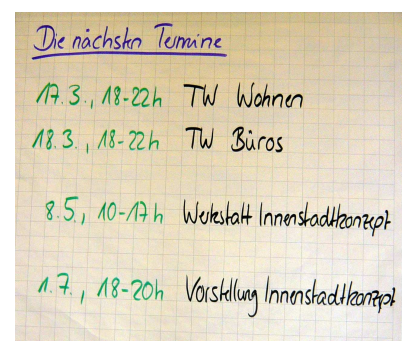 Die nächsten Termine
17.3., 18-22h TW Wohnen
18.3., 18-22h TW Büros
8.5., 10-17h Werkstatt Innenstadtkonzept
1.7., 18-20h Vorstellung Innenstadtkonzept